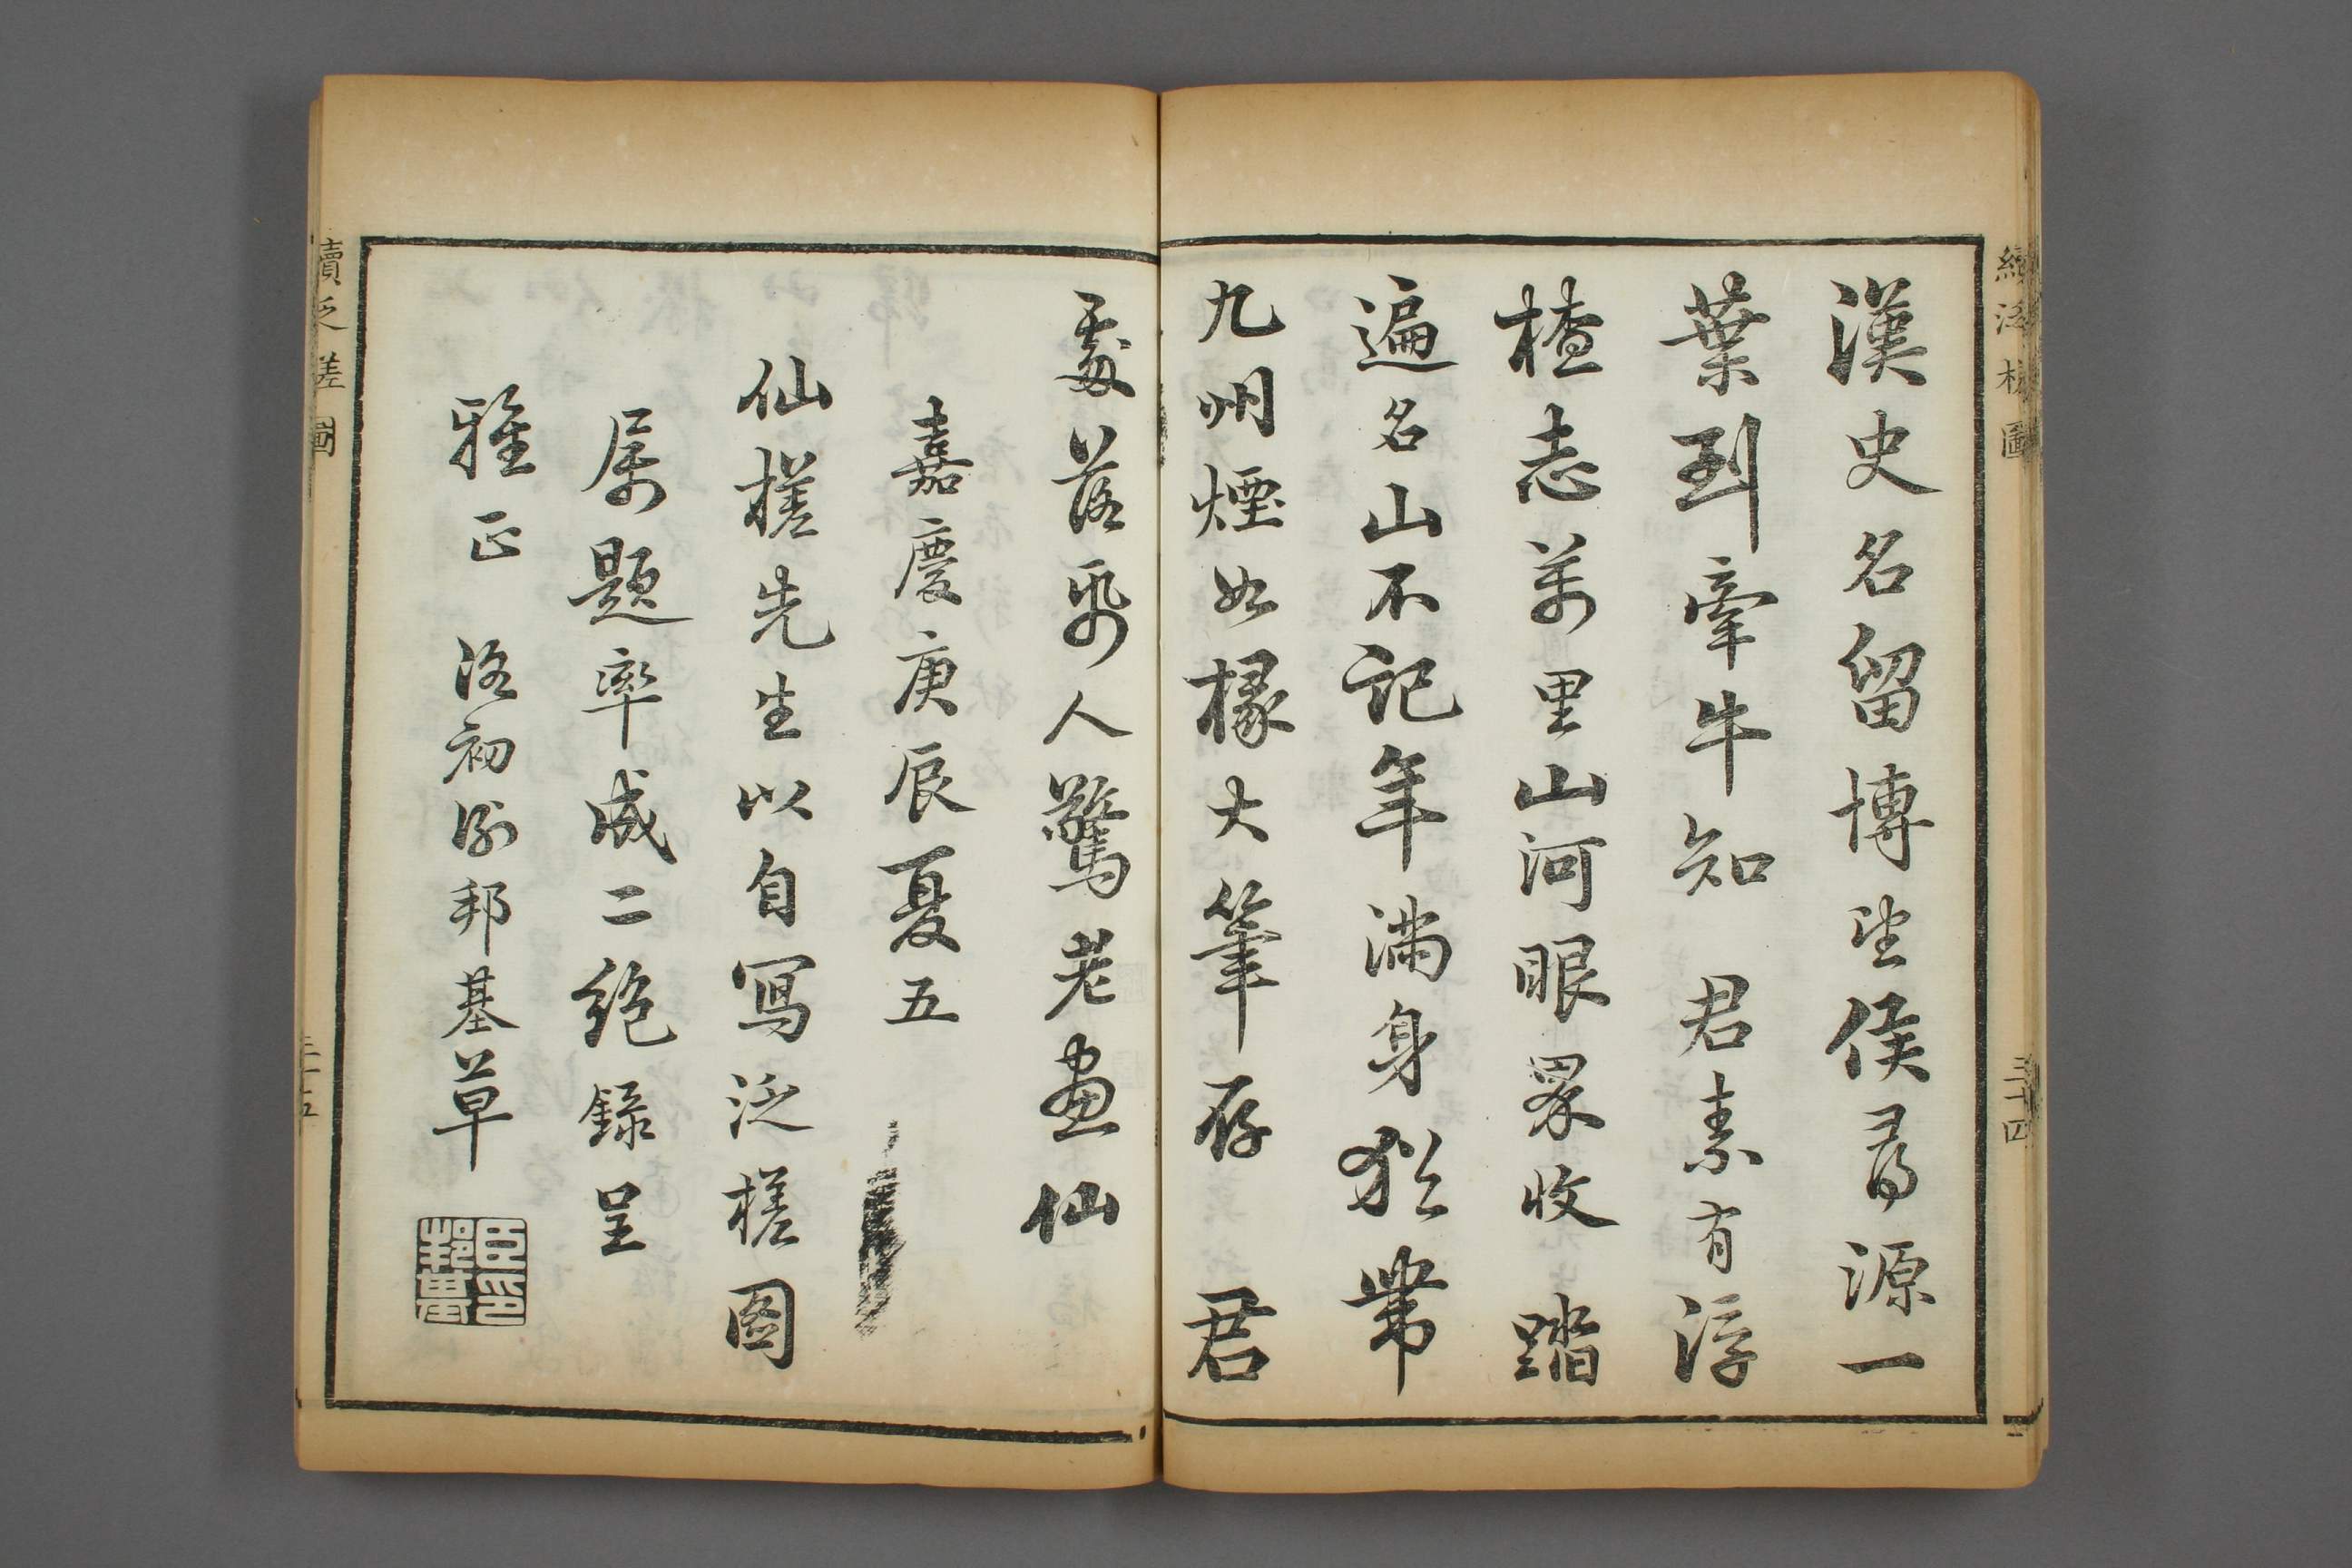 續泛槎圖
三十四
漢史名留博望侯尋源一
葉到牽牛知 君素有浮
楂志萬里山河眼界收 踏
遍名山不記年滿身猶帶
九州煙如椽大筆存 君
處落紙人驚老畫仙
嘉慶庚辰夏五
仙槎先生以自寫泛槎圖
屬題率成二絕錄呈
雅正 邦基草
臣印邦基
續泛槎圖
三十五